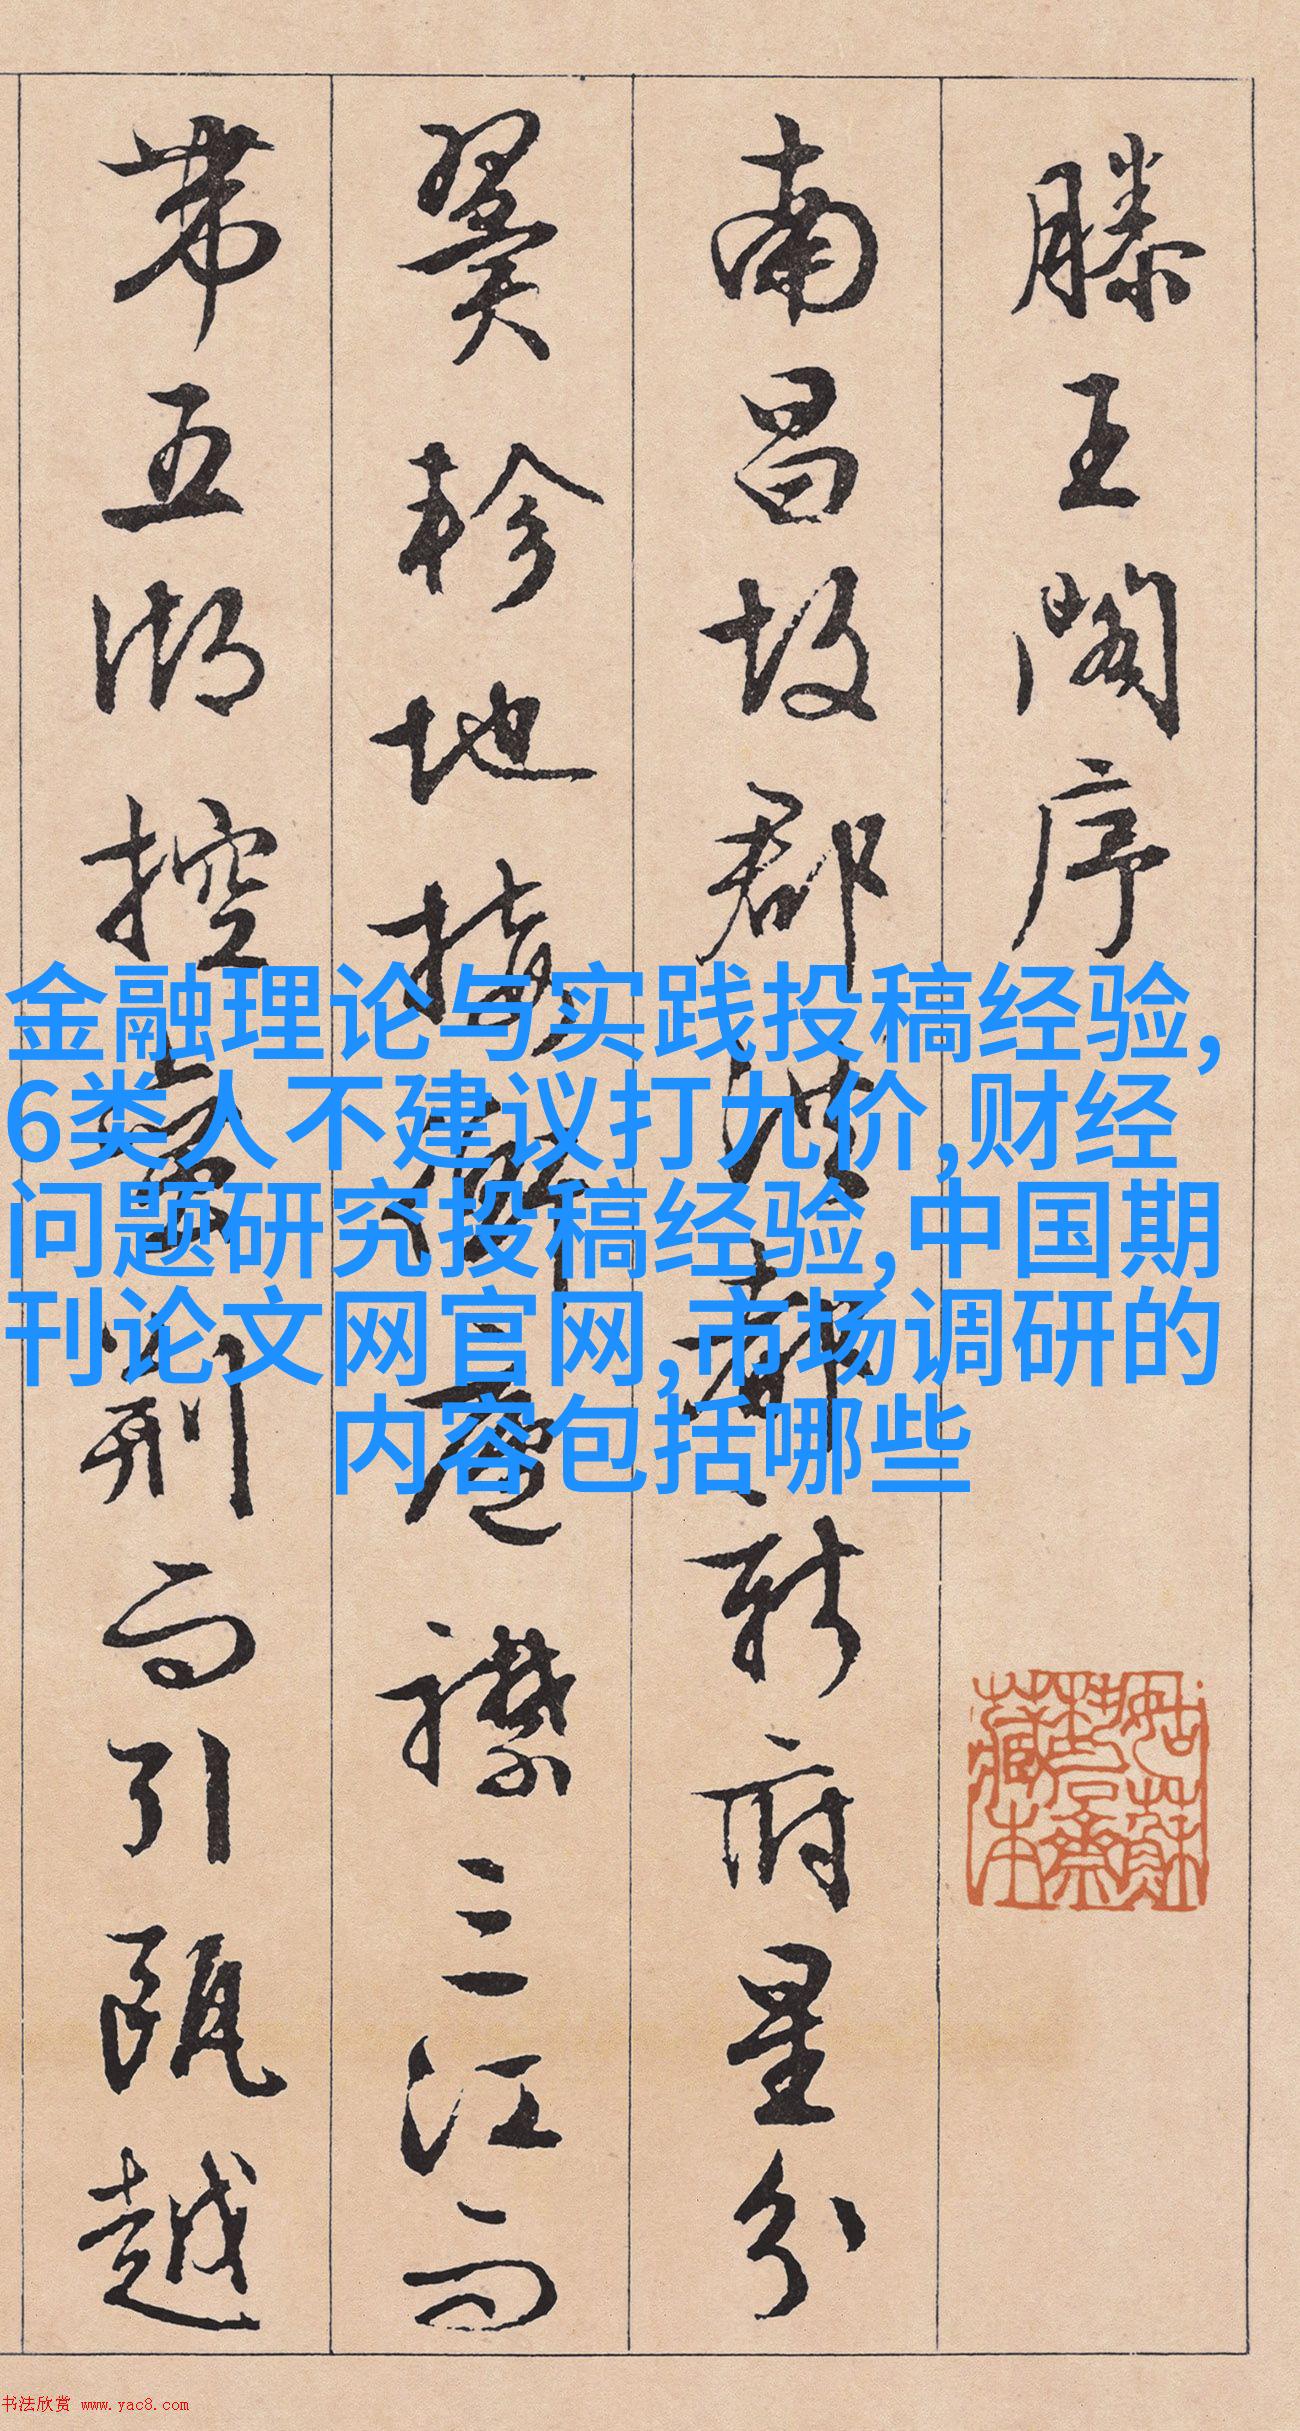 滕王閣序
南昌故郡洪都新府星分
翼軫地接衡廬襟三江而
帶五湖控蠻荊而引甌越
金融理论与实践投稿经验,
6类人不建议打九价,财经
问题研究投稿经验,中国期
刊论文网官网,市场调研的
内容包括哪些
书法欣赏 www.yac8.com